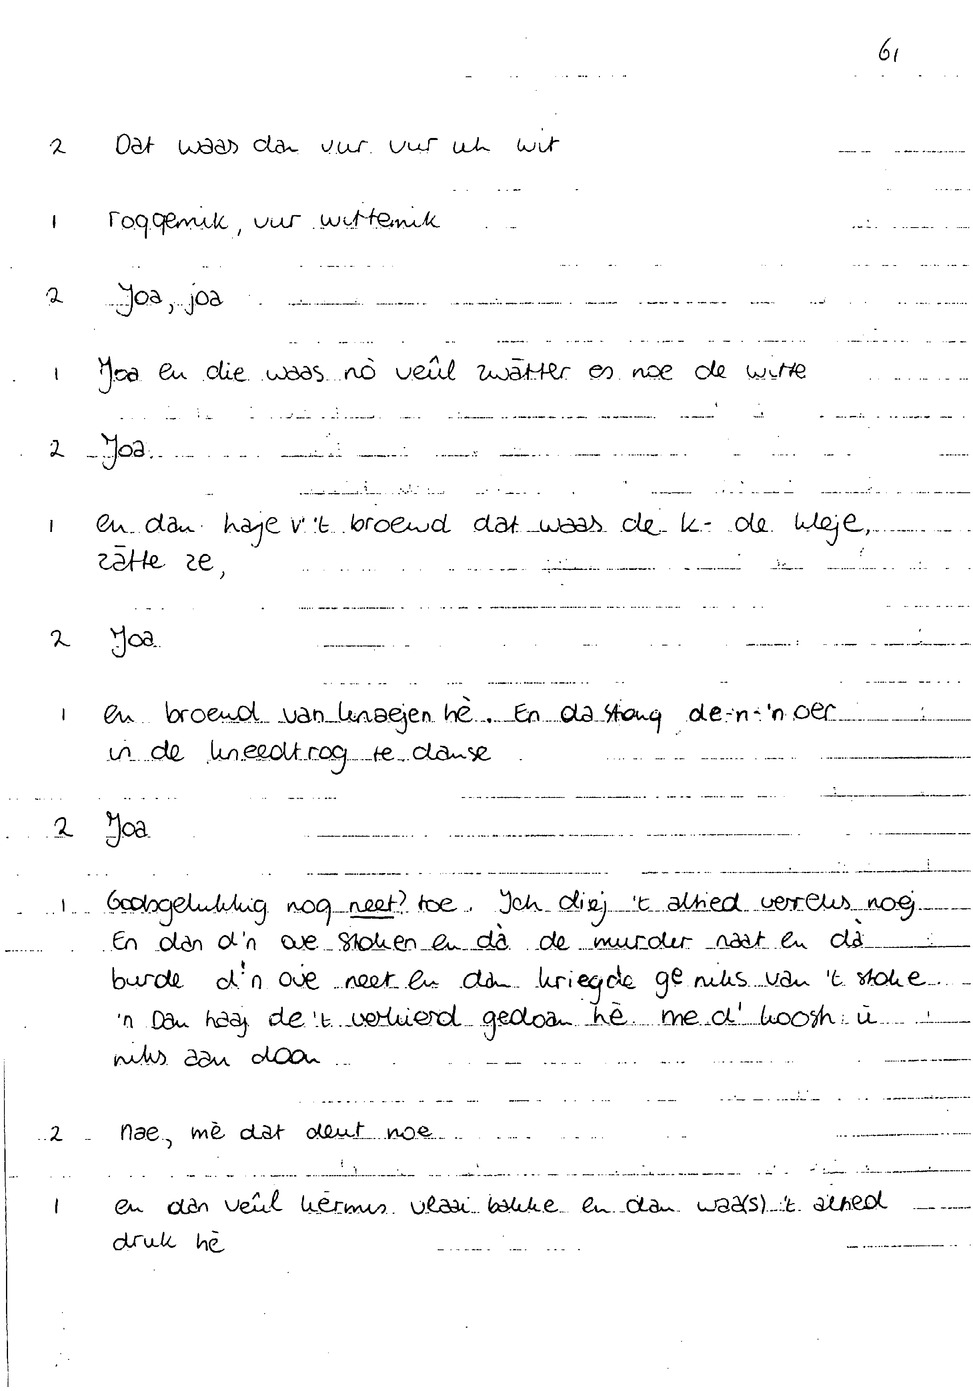 61
2 Dat waas dan vur vur uh wit
1 roggemik, vur wittemik
2 Joa, joa
1 Joa en die waas nò veûl zwātter es noe de witte
2 Joa
1 en dan haje v''t broewd dat waas de k- de kleje,
zātte ze,
2 Joa
1 en broewd van knaejen hè. En da stong de-n-'n oer
in de kneedtrog te danse
2 Joa
1 Godsgelukkig nog neet? toe. Ich diej 't altied verreks noej
En dan d'n ove stoken en dà de murder naat en dà
burde d'n ove neet en dan kriegde ge niks van 't stoke
'n Dan haaj de 't verkierd gedoan hè me d' koosh ù
niks aan doon
2 nae, mè dat deut noe
1 en dan veûl kèrmis vlaai bakke en dan waa(s) 't altied
druk hè